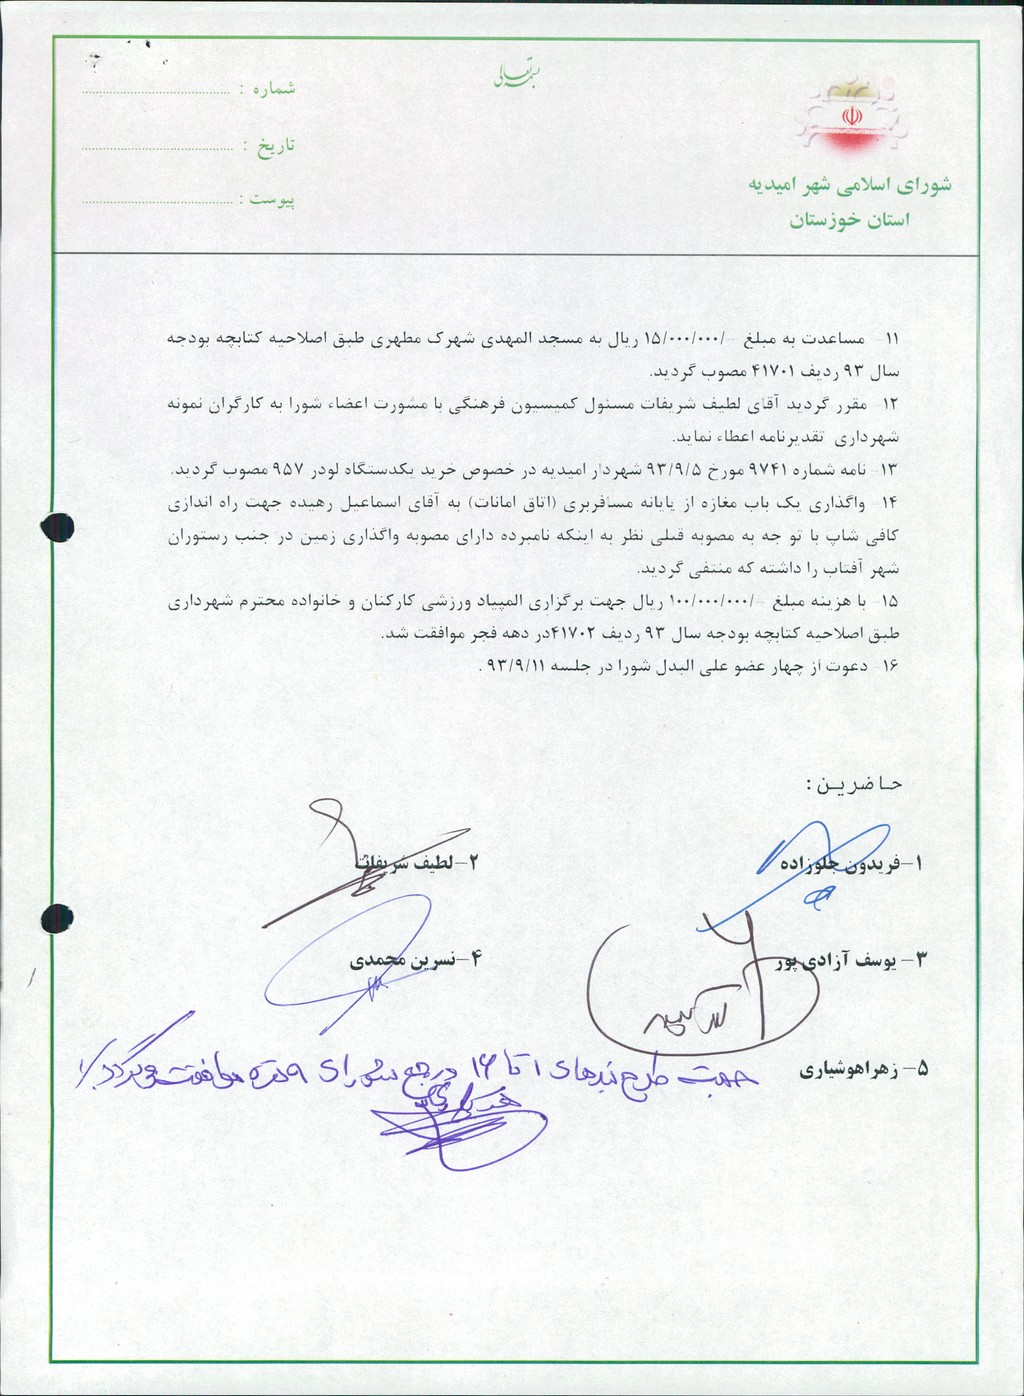 بسمه تعالی
شورای اسلامی شهر امیدیه
استان خوزستان
شماره :
تاریخ :
پیوست :
۱۱- مساعدت به مبلغ -/۱۵/۰۰۰/۰۰۰ ریال به مسجد المهدی شهرک مطهری طبق اصلاحیه کتابچه بودجه
سال ۹۳ ردیف ۴۱۷۰۱ مصوب گردید.
۱۲- مقرر گردید آقای لطیف شریفات مسئول کمیسیون فرهنگی با مشورت اعضاء شورا به کارگران نمونه
شهرداری تقدیرنامه اعطاء نماید.
۱۳- نامه شماره ۹۷۴۱ مورخ ۹۳/۹/۵ شهردار امیدیه در خصوص خرید یکدستگاه لودر ۹۵۷ مصوب گردید.
۱۴- واگذاری یک باب مغازه از پایانه مسافربری (اتاق امانات) به آقای اسماعیل رهیده جهت راه اندازی
کافی شاپ با تو جه به مصوبه قبلی نظر به اینکه نامبرده دارای مصوبه واگذاری زمین در جنب رستوران
شهر آفتاب را داشته که منتفی گردید.
۱۵- با هزینه مبلغ -/۱۰۰/۰۰۰/۰۰۰ ریال جهت برگزاری المپیاد ورزشی کارکنان و خانواده محترم شهرداری
طبق اصلاحیه کتابچه بودجه سال ۹۳ ردیف ۴۱۷۰۲در دهه فجر موافقت شد.
۱۶- دعوت از چهار عضو علی البدل شورا در جلسه ۹۳/۹/۱۱ .
حاضریـن :
۱-فریدون جلوزاده
۲-لطیف شریفات
۳- یوسف آزادی پور
۴-نسرین محمدی
۵- زهراهوشیاری
جهت طرح بندهای ۱ تا ۱۶ در جمع شورای ۹ نفره موافقت می‌گردد